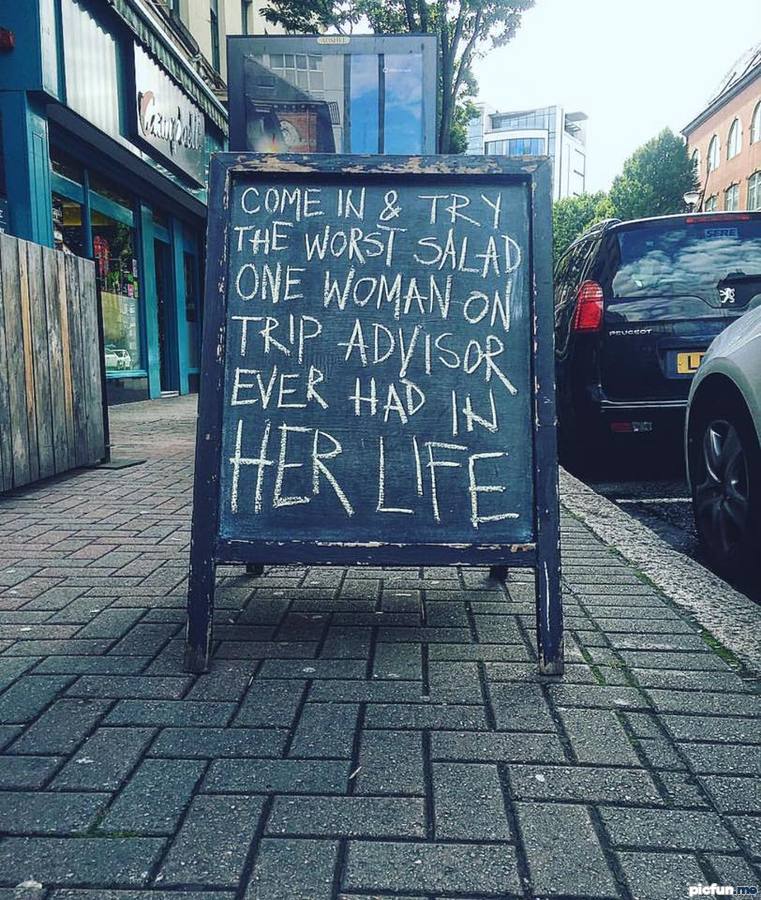 Campbell
COME IN & TRY
THE WORST SALAD
ONE WOMAN ON
TRIP ADVISOR
EVER HAD IN
HER LIFE
PEUGEOT
picfun.me